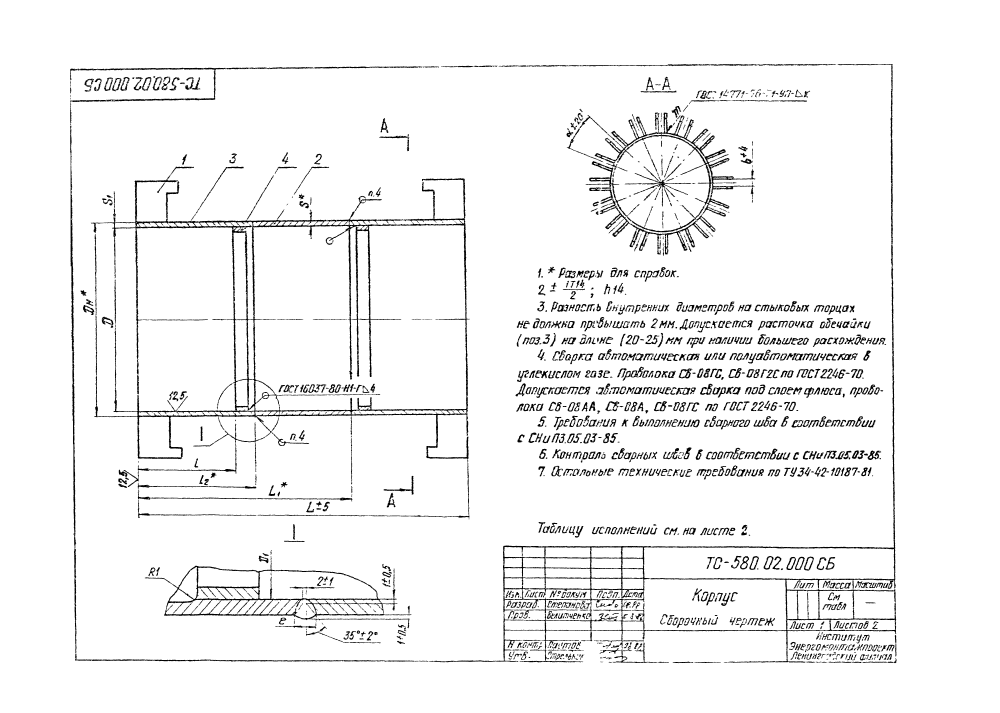 ТС-580.02.000 СБ
А
1
3
4
2
п.4
S₁
S*
Dн*
D
12,5
ГОСТ 16037-80-Н1-Г⊿4
I
п.4
l
l₂*
L₁*
L±5
12,5
А
А-А
α±20'
m
b±4
I
R1
D₁
2±1
1±0,5
e
35°±2°
1±0,5
1. * Размеры для справок.
2. ± IT14/2 ; h14.
3. Разность внутренних диаметров на стыковых торцах
не должна превышать 2 мм. Допускается расточка обечайки
(поз.3) на длине (20-25) мм при наличии большего расхождения.
4. Сварка автоматическая или полуавтоматическая в
углекислом газе. Проволока СВ-08ГС, СВ-08Г2С по ГОСТ 2246-70.
Допускается автоматическая сварка под слоем флюса, прово-
лока СВ-08АА, СВ-08А, СВ-08ГС по ГОСТ 2246-70.
5. Требования к выполнению сварного шва в соответствии
с СНиП3.05.03-85.
6. Контроль сварных швов в соответствии с СНиП3.05.03-85.
7. Остальные технические требования по ТУ34-42-10187-81.
Таблицу исполнений см. на листе 2.
ТС-580.02.000 СБ
Корпус
Сборочный чертеж
Лит Масса Масштаб
См.
табл —
Лист 1 Листов 2
Изм. Лист № докум Подп. Дата
Разраб. Степанова
Пров.
Н контр
Утв.
Институт
Энергомонтажпроект
Ленинградский филиал